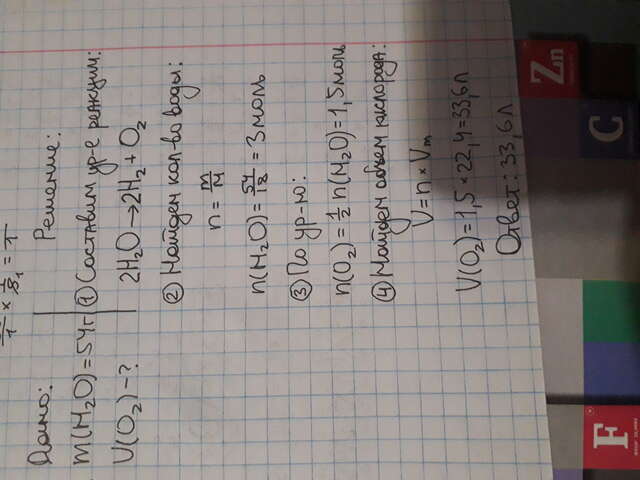 1 × 1/8₁ = 1
Дано:
Решение:
m(H₂O)=54г
① Составим ур-е реакции:
V(O₂)-?
2H₂O→2H₂+O₂
② Найдем кол-во воды:
n = m/M
n(H₂O)= 54/18 = 3 моль
③ По ур-ю:
n(O₂)= 1/2 n(H₂O)=1,5моль
④ Найдем объем кислорода:
V=n×Vm
V(O₂)=1,5×22,4=33,6л
Ответ: 33,6л
Zn
F
C